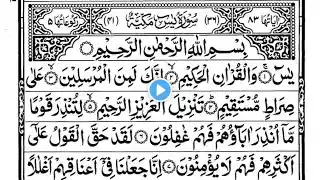 اٰیاتها ٨٣ (٣٦) سُوْرَةُ يٰسٓ مَكِّيَّةٌ (٤١) رکوعاتها ٥
بِسْمِ اللّٰهِ الرَّحْمٰنِ الرَّحِيْمِ
يٰسٓ ۚ وَالْقُرْاٰنِ الْحَكِيْمِ ۙ اِنَّكَ لَمِنَ الْمُرْسَلِيْنَ ۙ عَلٰى
صِرَاطٍ مُّسْتَقِيْمٍ ؕ تَنْزِيْلَ الْعَزِيْزِ الرَّحِيْمِ ۙ لِتُنْذِرَ قَوْمًا
مَّاۤ اُنْذِرَ اٰبَآؤُهُمْ فَهُمْ غٰفِلُوْنَ لَقَدْ حَقَّ الْقَوْلُ عَلٰۤى
اَكْثَرِهِمْ فَهُمْ لَا يُؤْمِنُوْنَ اِنَّا جَعَلْنَا فِيْۤ اَعْنَاقِهِمْ اَغْلٰلًا